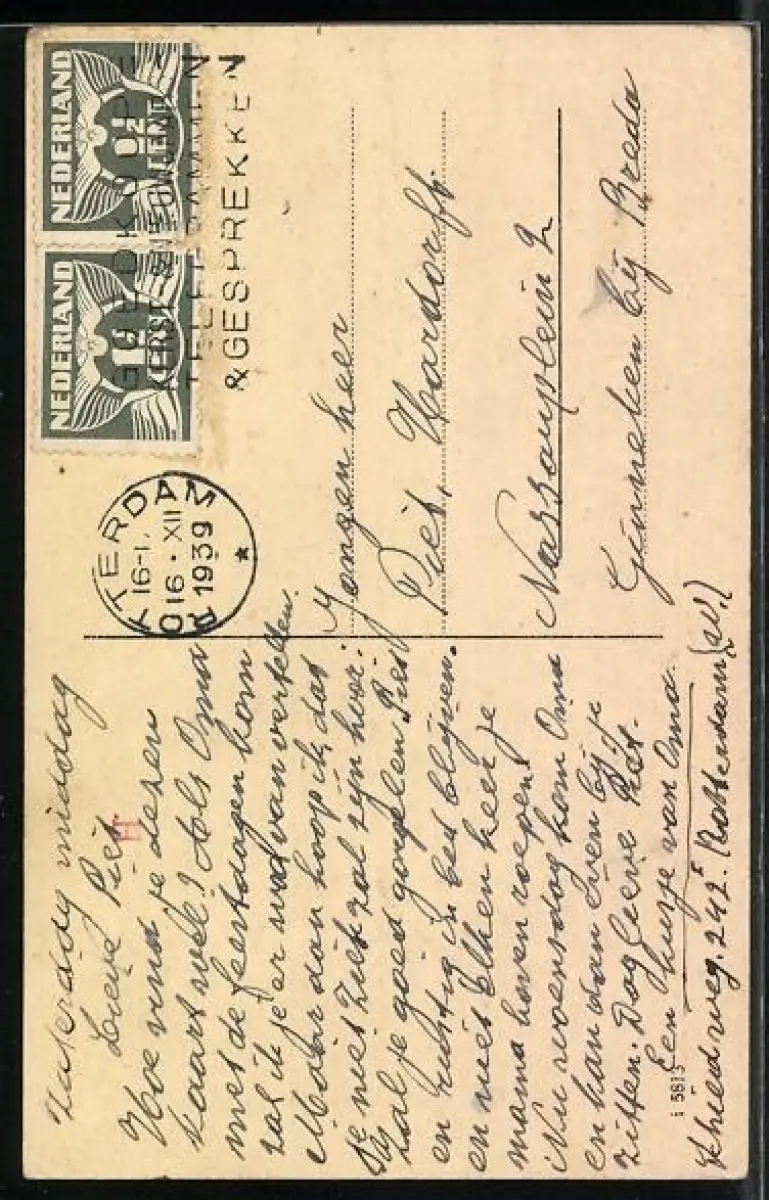 NEDERLAND
1½
CENT
NEDERLAND
1½
KERST- & NIEUWJAARS-
TELEGRAMMEN
& GESPREKKEN
ROTTERDAM
16-1
16 . XII
1939
Zaterdag middag
Lieve Piet
Hoe vind je dezen
kaart wel? Als Oma
met de feestdagen kom
zal ik je er wat van vertellen.
Maar dan hoop ik, dat
je niet ziek zal zijn hoor.
Zal je goed gorgelen Piet
en rustig in bed blijven.
en niet elken keer je
mama boven roepen!
Nu woensdag kom Oma
en kan dan even bij je
zitten. Dag lieve Piet.
Een kusje van Oma.
Schiedweg. 242. Rotterdam
Jongen heer
Piet,
Nassauplein 2
Ginneken bij Breda
H
i 5813